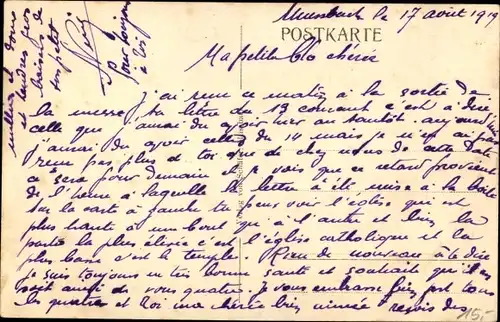 Mussbach le 17 avril 1919
POSTKARTE
Ma petite Clo chérie
J'ai reçu ce matin à la sortie de
la messe ta lettre du 13 courant c'est à dire
celle que j'aurai du avoir hier au bientôt. aujourd'hui
j'aurai du avoir celle du 14 mais je n'ai
rien pas plus de toi que de chez nous de cette date
ce sera pour demain et je vois que ce retard provient
de l'heure à laquelle la lettre a été mise à la boîte
sur la carte à gauche tu peux voir l'église qui est
plus haute à un bout qu'à l'autre et bien la
partie la plus élevée c'est l'église catholique et la
plus basse c'est le temple. Rien de nouveau à te dire
je suis toujours en très bonne santé et souhaite qu'il en
soit ainsi de vous quatre. Je vous embrasse bien fort tous
les quatre et toi ma chérie bien aimée reçois des
milliers de doux
et tendres gros
baisers de
ton petit
pour toujours
à toi
15,-